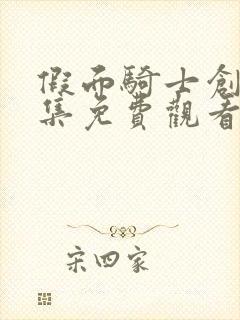 假面騎士創
集免費觀看
宋四家